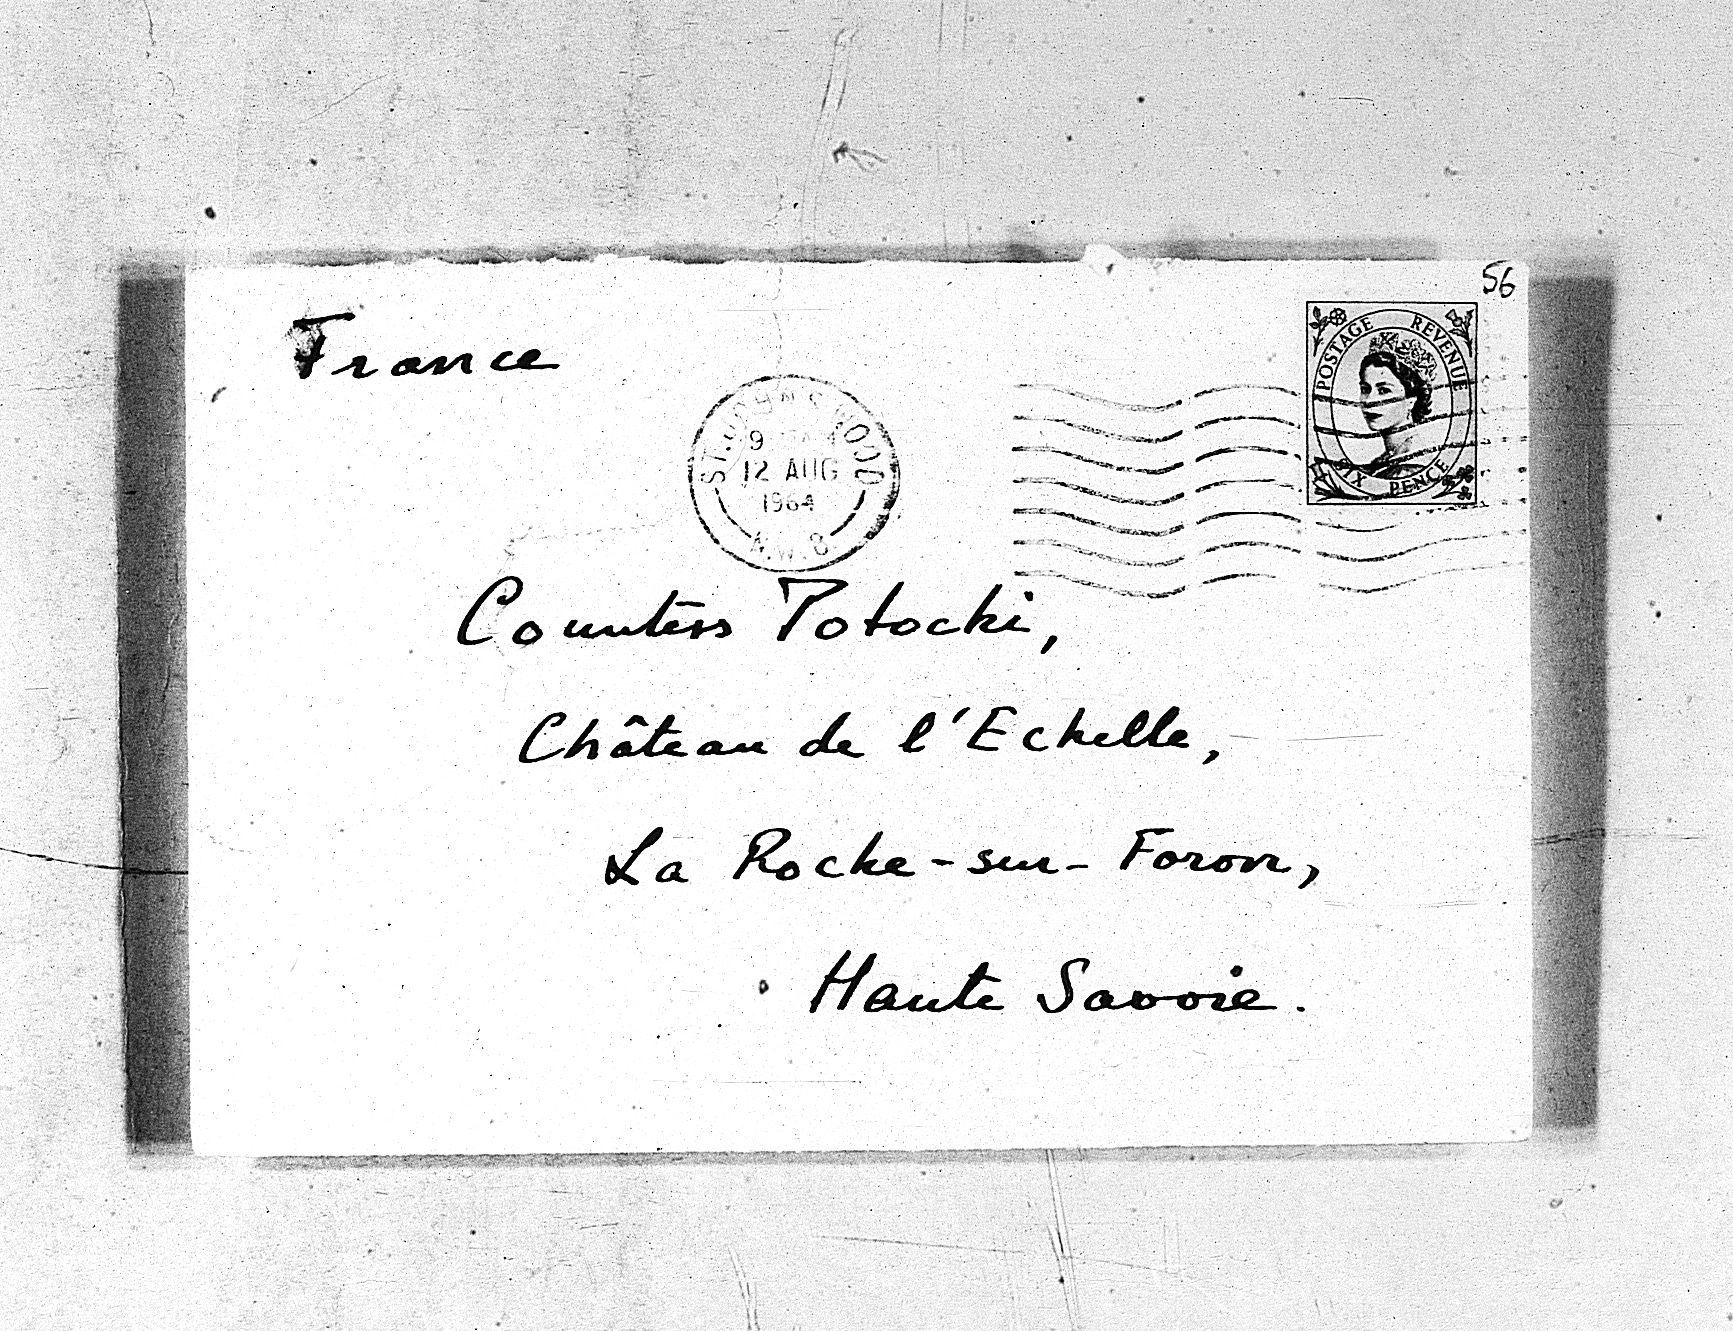 56
France
POSTAGE REVENUE
SIX PENCE
ST. JOHN'S WOOD
12 AUG
1964
N.W.8
Countess Potocki,
Château de l'Echelle,
La Roche-sur-Foron,
Haute Savoie.